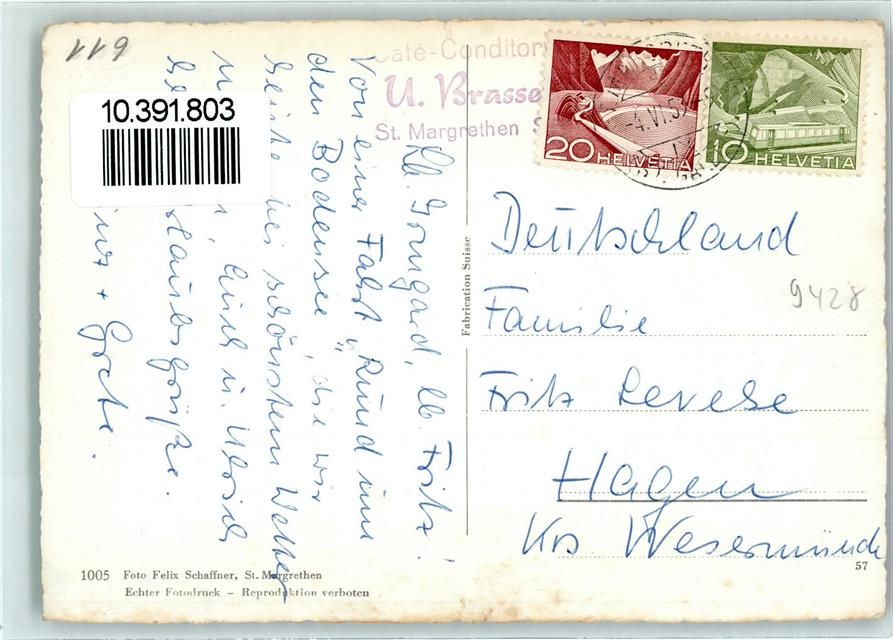 611
10.391.803
Café-Conditor
U. Brasse
St. Margrethen
20 HELVETIA
10 HELVETIA
4.VI.57
Lb. Irmgard, lb. Fritz!
Von einer Fahrt „Rund um
den Bodensee", die wir
heute bei schönstem Wetter
Euch u. Ulrich
Urlaubsgrüße.
+ Grete.
Fabrication Suisse
Deutschland
Familie
Fritz Revese
Hagen
Krs Wesermünde
9428
57
1005 Foto Felix Schaffner, St. Margrethen
Echter Fotodruck – Reproduktion verboten